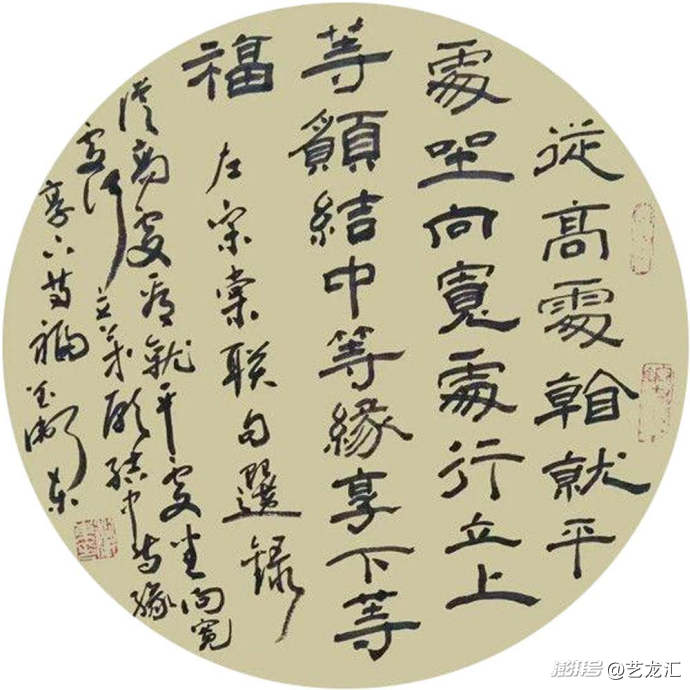 從高處看就平
處坐向寬處行立上
等願結中等緣享下等
福 左宗棠联句選録
從高處看就平處坐向寬
處行立上等願结中等缘
享下等福
澎湃号 @艺龙汇